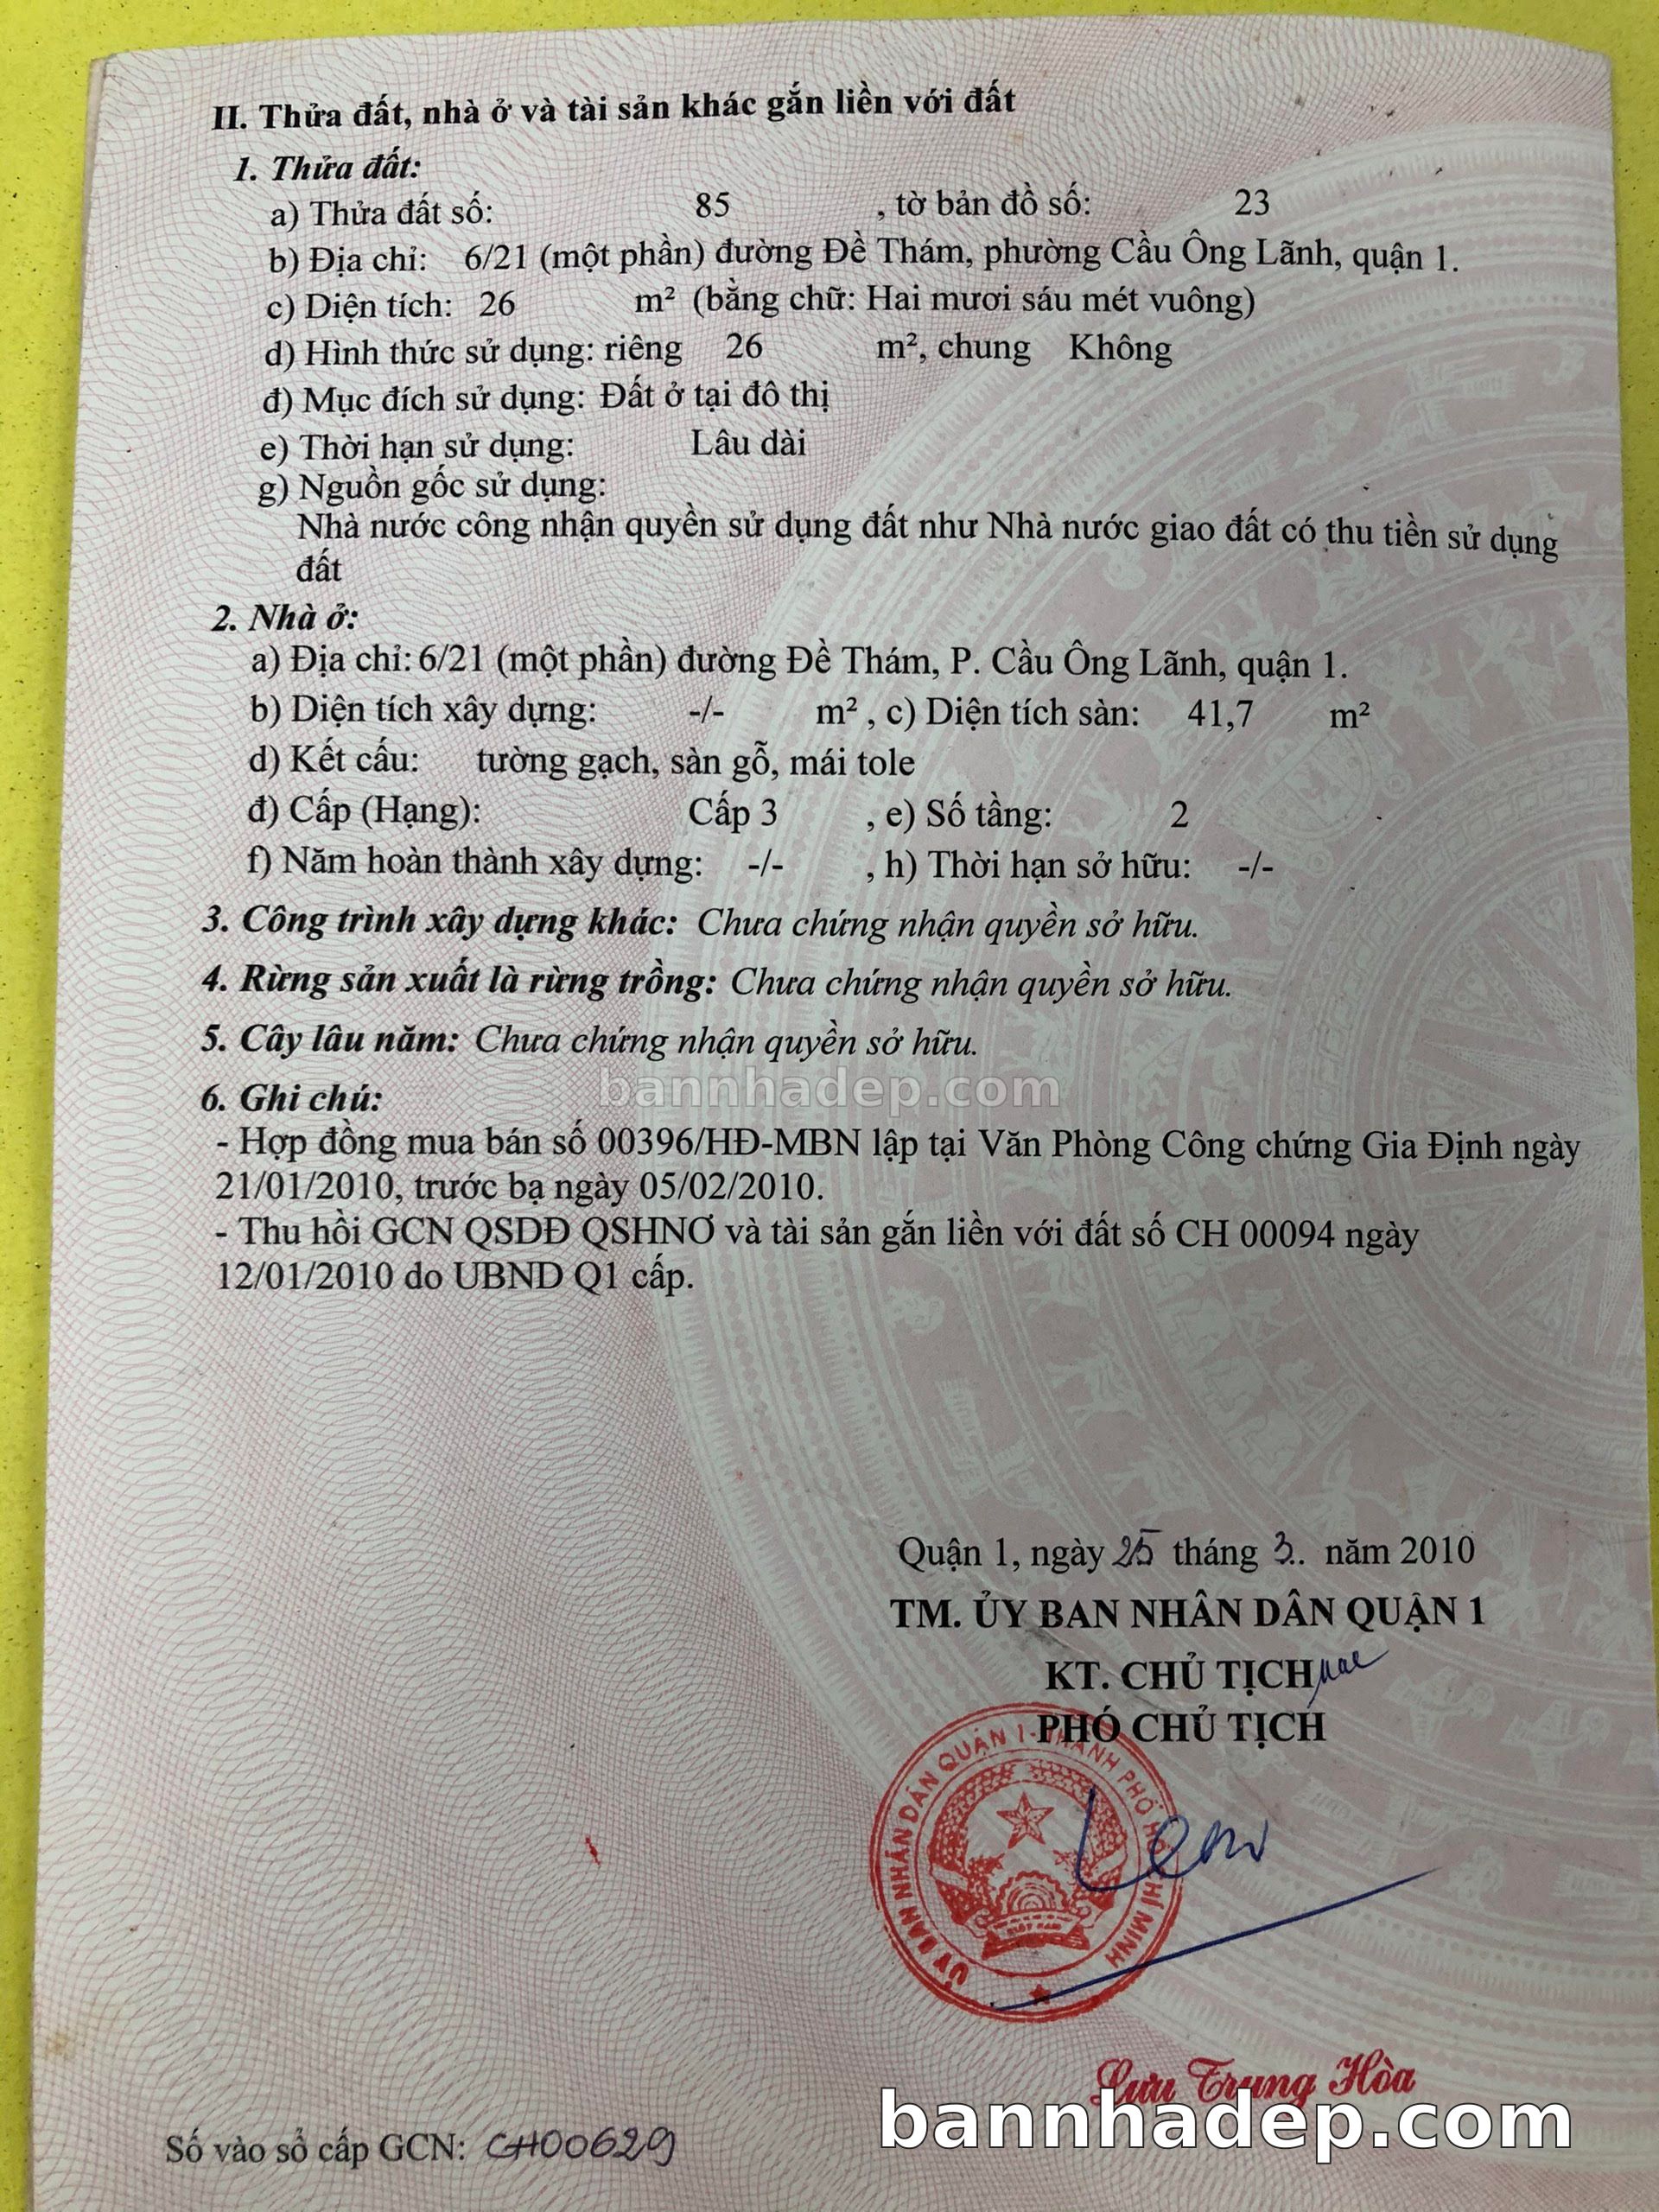 II. Thửa đất, nhà ở và tài sản khác gắn liền với đất
1. Thửa đất:
a) Thửa đất số: 85 , tờ bản đồ số: 23
b) Địa chỉ: 6/21 (một phần) đường Đề Thám, phường Cầu Ông Lãnh, quận 1.
c) Diện tích: 26 m² (bằng chữ: Hai mươi sáu mét vuông)
d) Hình thức sử dụng: riêng 26 m², chung Không
đ) Mục đích sử dụng: Đất ở tại đô thị
e) Thời hạn sử dụng: Lâu dài
g) Nguồn gốc sử dụng:
Nhà nước công nhận quyền sử dụng đất như Nhà nước giao đất có thu tiền sử dụng
đất
2. Nhà ở:
a) Địa chỉ: 6/21 (một phần) đường Đề Thám, P. Cầu Ông Lãnh, quận 1.
b) Diện tích xây dựng: -/- m² , c) Diện tích sàn: 41,7 m²
d) Kết cấu: tường gạch, sàn gỗ, mái tole
đ) Cấp (Hạng): Cấp 3 , e) Số tầng: 2
f) Năm hoàn thành xây dựng: -/- , h) Thời hạn sở hữu: -/-
3. Công trình xây dựng khác: Chưa chứng nhận quyền sở hữu.
4. Rừng sản xuất là rừng trồng: Chưa chứng nhận quyền sở hữu.
5. Cây lâu năm: Chưa chứng nhận quyền sở hữu.
bannhadep.com
6. Ghi chú:
- Hợp đồng mua bán số 00396/HĐ-MBN lập tại Văn Phòng Công chứng Gia Định ngày
21/01/2010, trước bạ ngày 05/02/2010.
- Thu hồi GCN QSDĐ QSHNƠ và tài sản gắn liền với đất số CH 00094 ngày
12/01/2010 do UBND Q1 cấp.
Quận 1, ngày 25 tháng 3.. năm 2010
TM. ỦY BAN NHÂN DÂN QUẬN 1
KT. CHỦ TỊCH
PHÓ CHỦ TỊCH
ỦY BAN NHÂN DÂN QUẬN 1 - THÀNH PHỐ HỒ CHÍ MINH
VIỆT NAM
Lưu Trung Hòa
bannhadep.com
Số vào sổ cấp GCN: CH00629